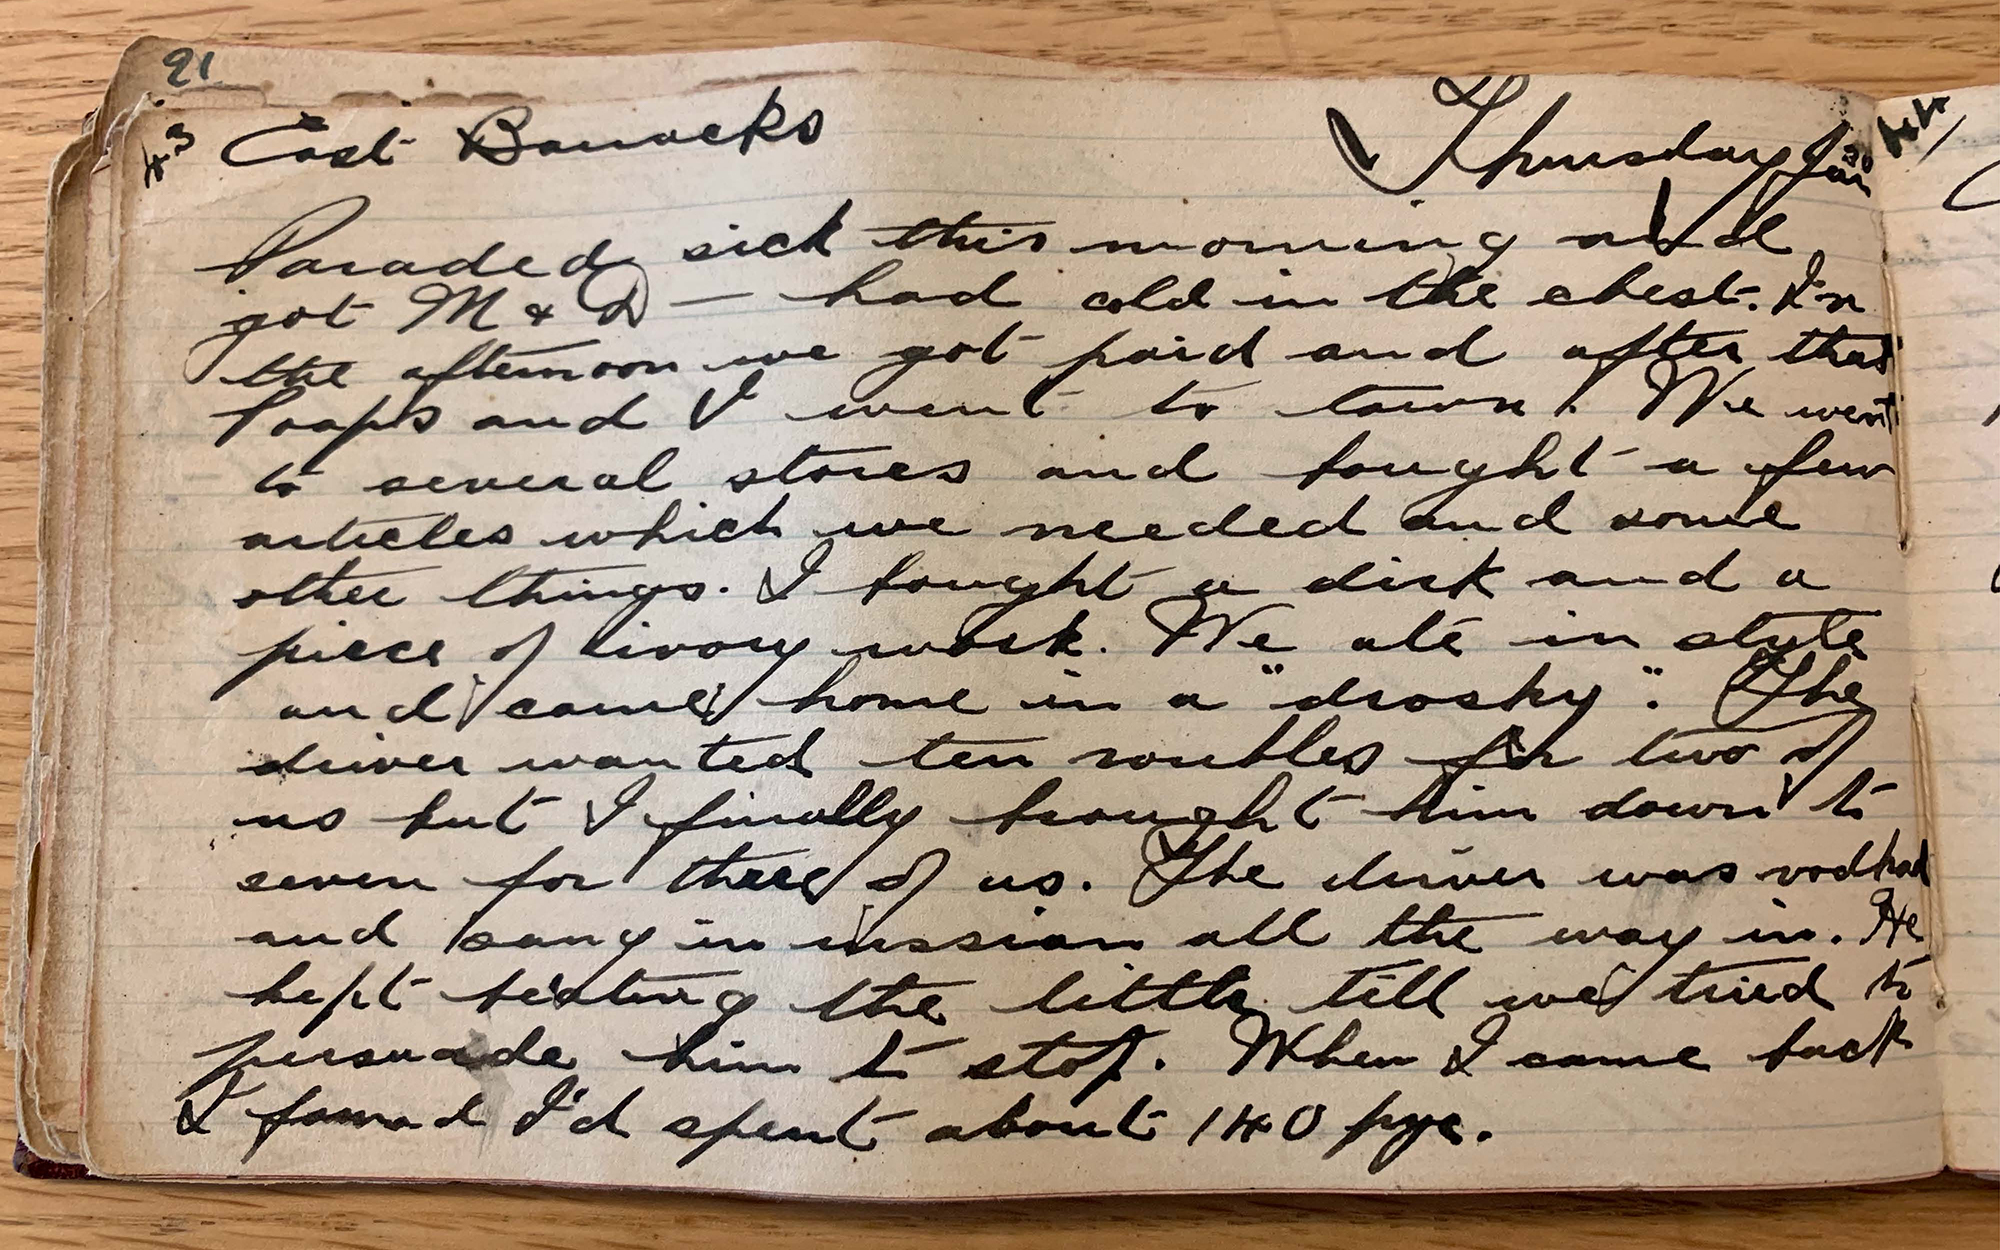 91
43 East Barracks Thursday Jan 30 44
Paraded sick this morning and
got M & D — had cold in the chest. In
the afternoon we got paid and after that
Poaps and I went to town. We went
to several stores and bought a few
articles which we needed and some
other things. I bought a dirk and a
piece of ivory work. We ate in style
and came home in a "drosky". The
driver wanted ten roubles for two of
us but I finally brought him down to
seven for three of us. The driver was vodkad
and sang in russian all the way in. He
kept beating the little till we tried to
persuade him to stop. When I came back
I found I'd spent about 140 pye.